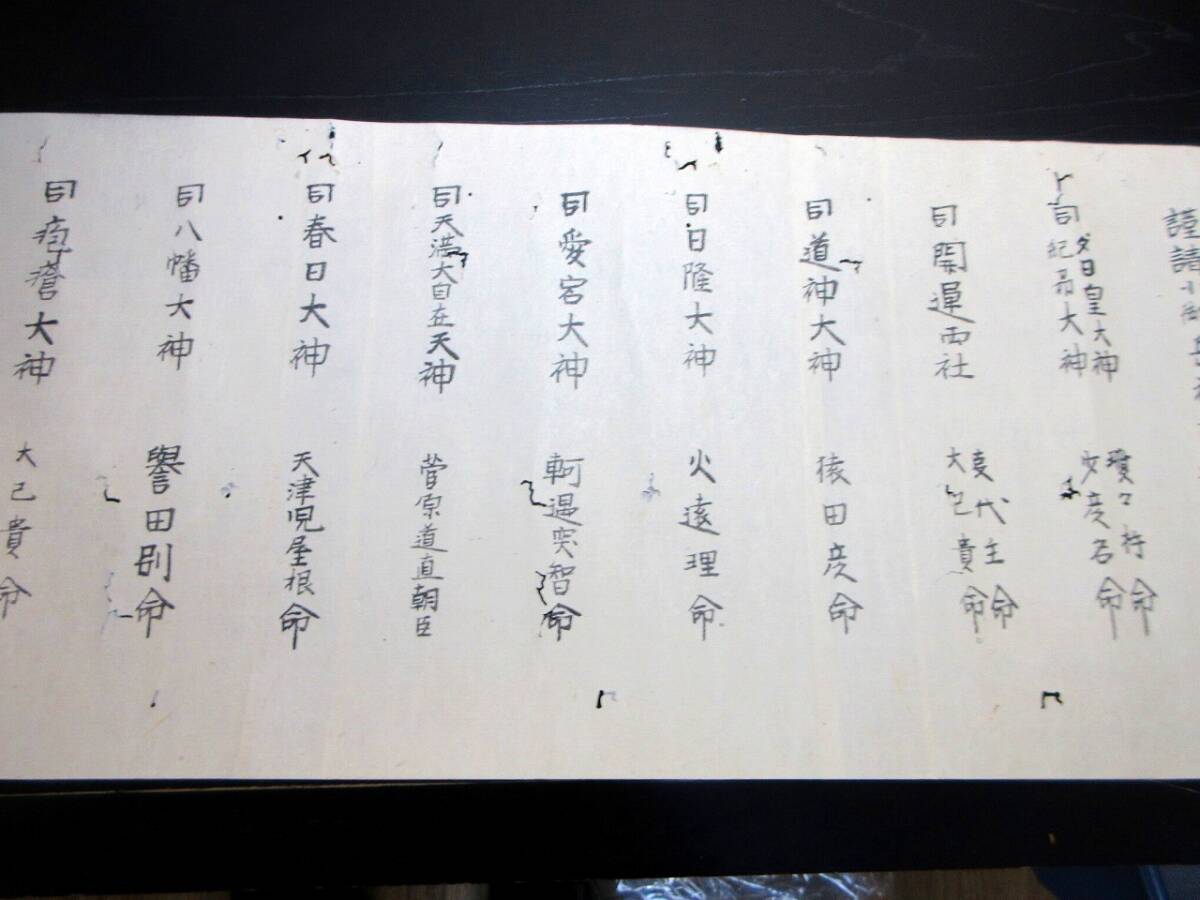 謹請
同 夕日皇大神 瓊々杵命
紀 大神 少彦名命
同 開運両社 事代主命
大己貴命
同 道神大神 猿田彦命
同 日隆大神 火遠理命
同 愛宕大神 軻遇突智命
同 天満大自在天神 菅原道直朝臣
同 春日大神 天津児屋根命
同 八幡大神 譽田別命
同 疱瘡大神 大己貴命